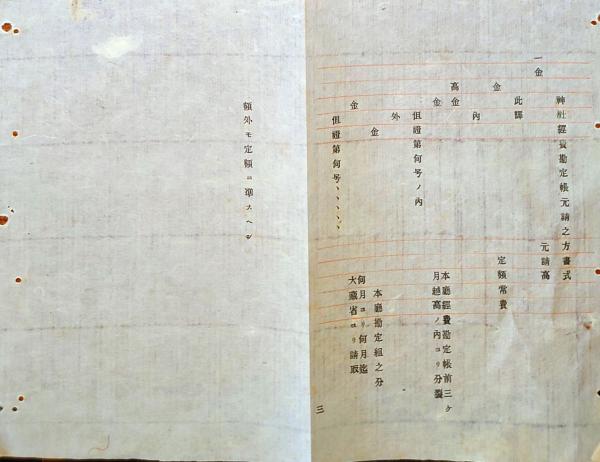 神社經費勘定帳元請之方書式
一金
元請高
此譯
金
定額常費
內
高金
金
本廳經費勘定帳前三ケ
月越高ノ內ヨリ分裂
但證第何号ノ內
外
金
本廳勘定組之分
金
何月ヨリ何月迄
大藏省ヨリ請取
但證第何号、、、、、
三
額外モ定額ニ準スヘシ